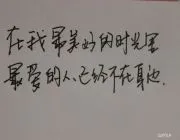 在我最美好的时光里
最爱的人、已经不在身边.